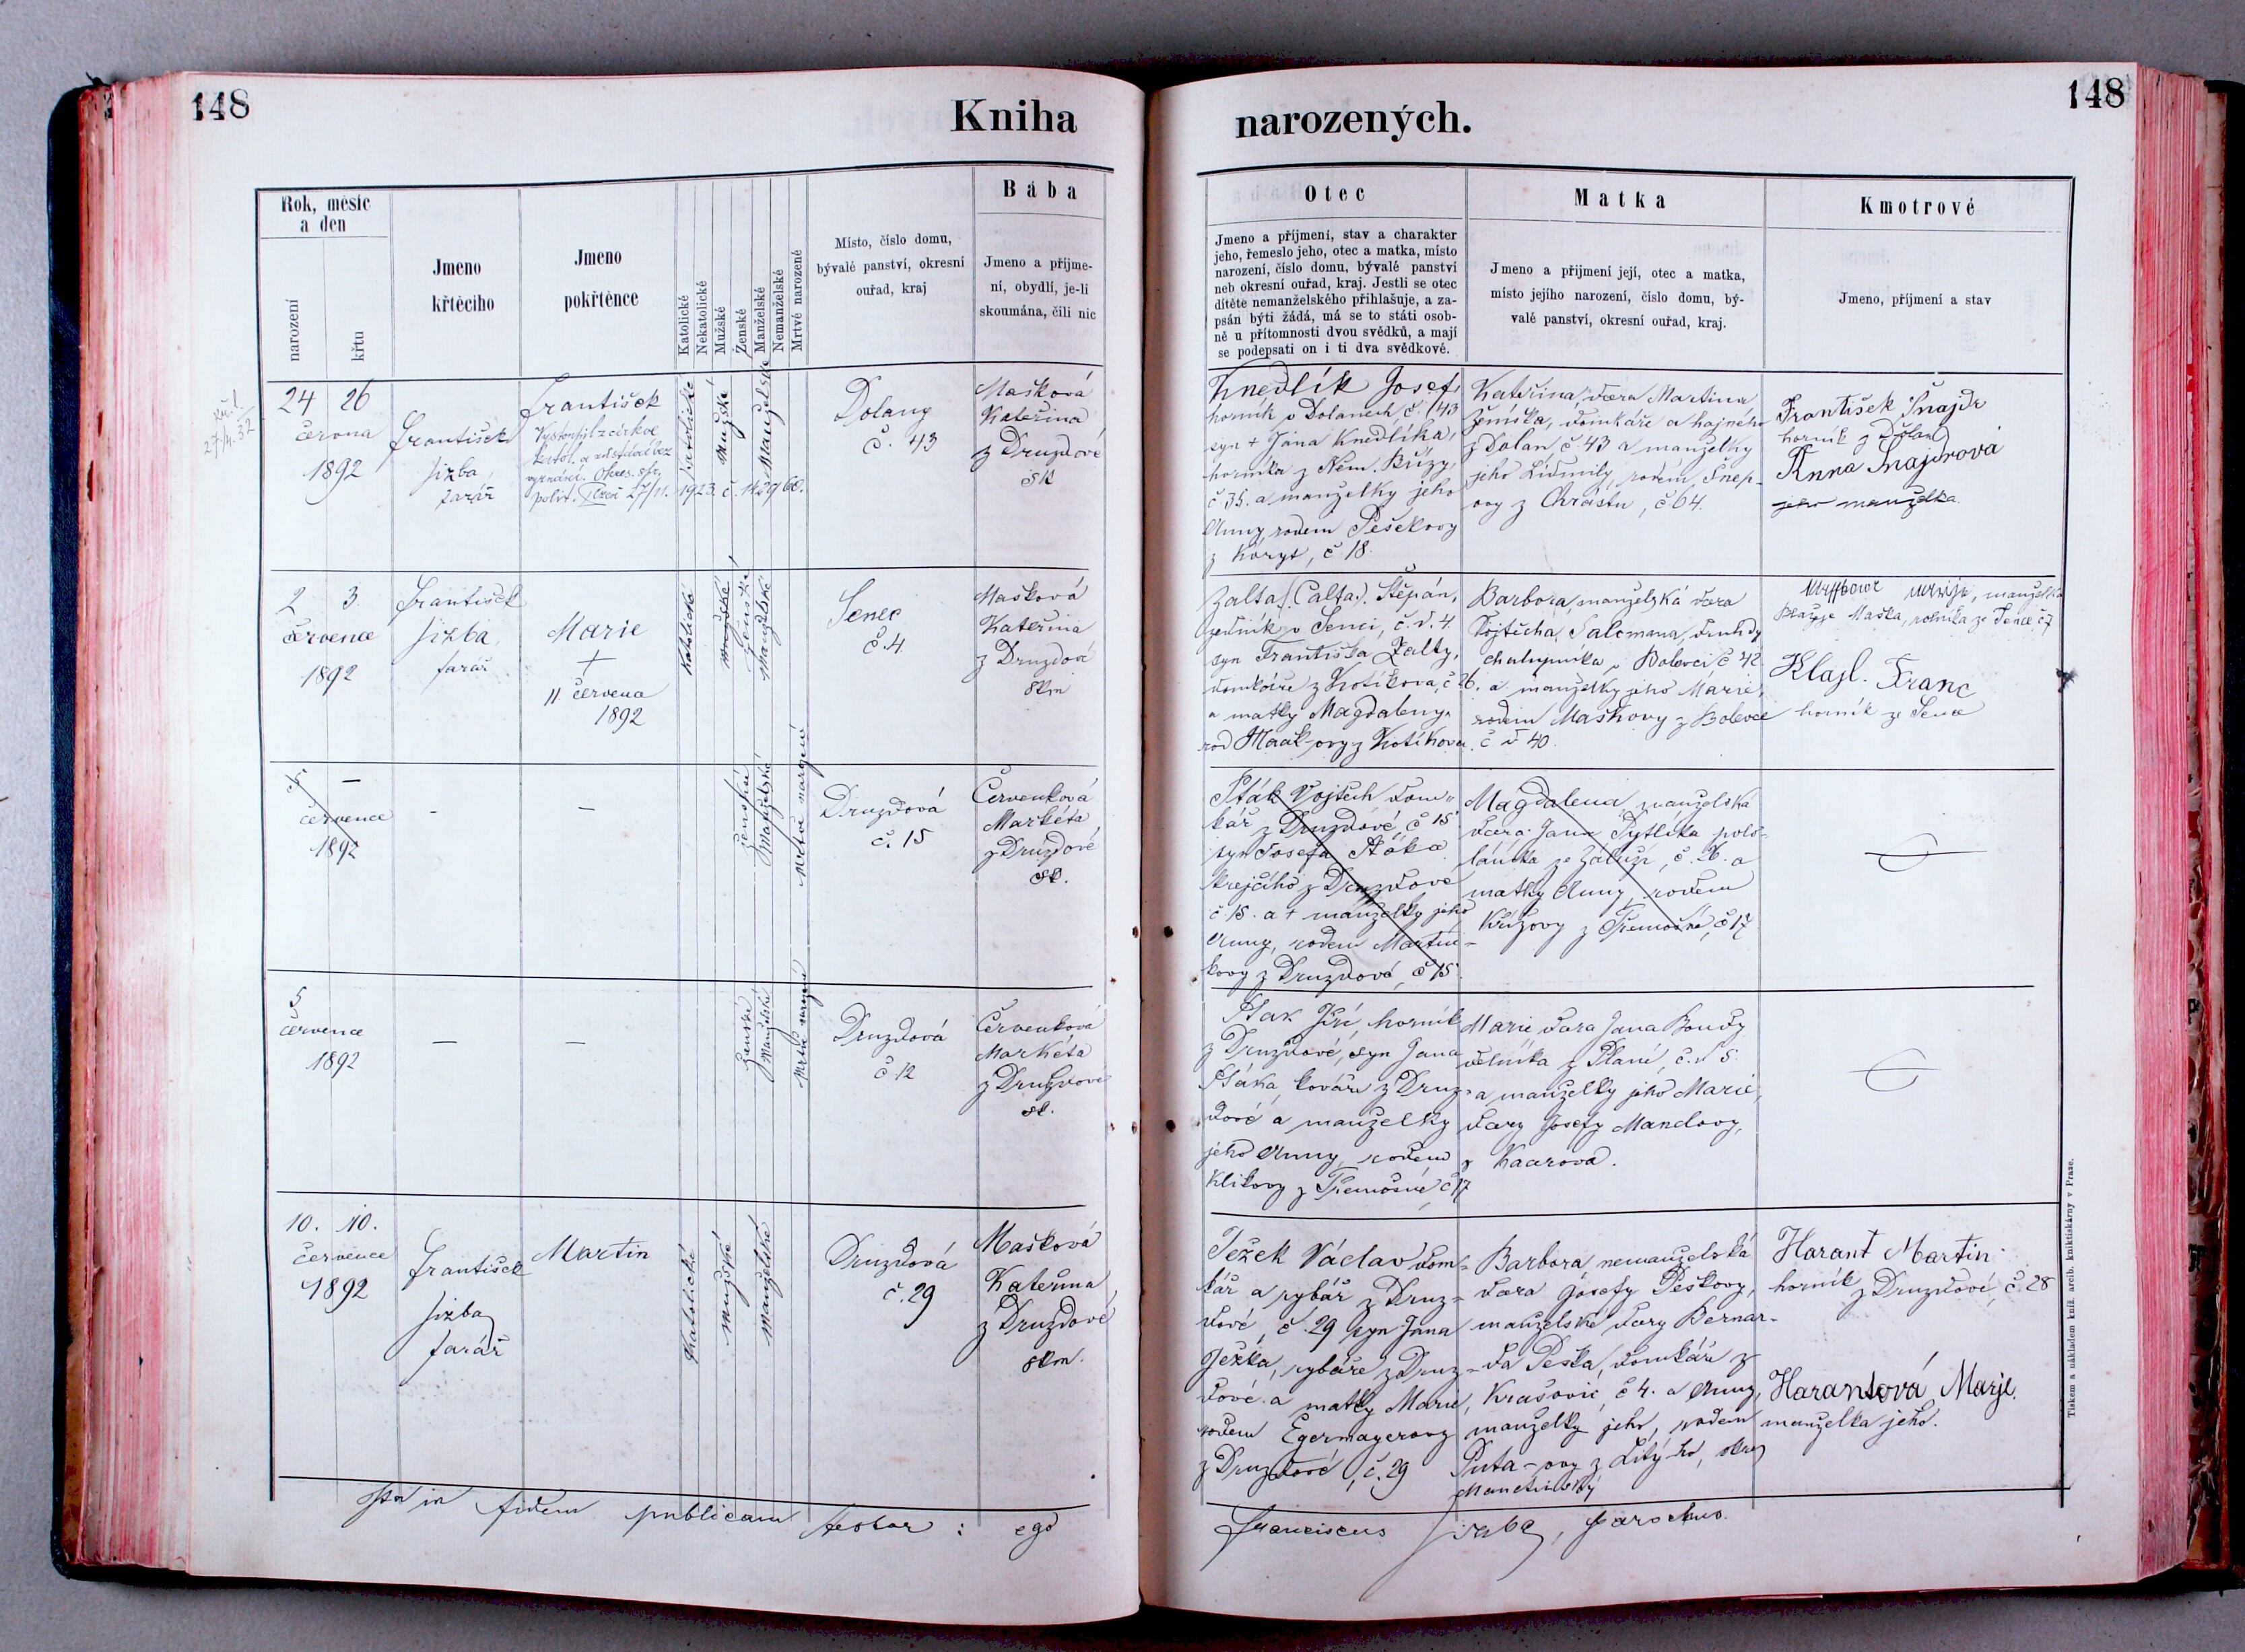 148
Kniha
narozených.
148
Rok, měsíc
a den
narození
křtu
Jmeno
křtěcího
Jmeno
pokřtěnce
Katolické
Nekatolické
Mužské
Ženské
Manželské
Nemanželské
Mrtvě narozené
Místo, číslo domu,
bývalé panství, okresní
ouřad, kraj
Bába
Jmeno a příjme-
ní, obydlí, je-li
skoumána, čili nic
Otec
Jmeno a příjmení, stav a charakter
jeho, řemeslo jeho, otec a matka, místo
narození, číslo domu, bývalé panství
neb okresní ouřad, kraj. Jestli se otec
dítěte nemanželského přihlašuje, a za-
psán býti žádá, má se to státi osob-
ně u přítomnosti dvou svědků, a mají
se podepsati on i ti dva svědkové.
Matka
Jmeno a přijmení její, otec a matka,
místo jejího narození, číslo domu, bý-
valé panství, okresní ouřad, kraj.
Kmotrové
Jmeno, příjmení a stav
27/4.32
24 26
června
1892
František
Jizba,
farář
František
Vystoupil z církve
katol. a zůstává bez
vyznání. Okres. spr.
polit. Plzeň 27/11. 1923. č. 142960.
katolické
mužské
Manželské
Dolany
č. 43
Mašková
Kateřina
z Druzdové
sk
Knedlík Josef,
horník v Dolanech č. 43
syn + Jana Knedlíka,
horníka z Něm. Břízy,
č 35. a manželky jeho
Anny, rodem Pešekovy
z Koryt, č 18.
Kateřina, dcera Martina
Zemíska, domkáře a hajného
z Dolan č 43 a manželky
jeho Lidmily, rodem Šnep-
ovy z Chrástu, č 64.
František Šnajdr
horník z Dolan
Anna Šnajdrová
jeho manželka
2 3
července
1892
František
Jizba,
farář
Marie
+
11 července
1892
Katolické
mužské
ženské
Manželské
Senec
č. 4
Mašková
Kateřina
z Druzdové
skm
Zalta (Calta). Štěpán,
horník v Senci, č. d. 4
syn Františka Zalty,
domkáře z Kotíkova, č 26.
a matky Magdaleny,
rod Maák-ovy z Kotíkova
Barbora, manželská dcera
Vojtěcha Salcmana, druhdy
chalupníka v Bolevci č 42
a manželky jeho Marie,
rodem Maškovy z Bolevce
č d 40.
manželka
Blažeje Maška, rolníka ze Sence č 7
Klajl. Franc
horník ze Sence
5 —
července
1892
-
—
ženské
Manželské
mrtvě narozené
Druzdová
č. 15
Červenková
Markéta
z Druzdové
sk.
Pták Vojtěch dom-
kář z Druzdové, č 15
syn Josefa Ptáka
krejčího z Druzdové
č 15. a + manželky jeho
Anny, rodem Martín-
kovy z Druzdové, č 15.
Magdalena manželská
dcera Jana Pytlíka polo-
láníka ze Záluží, č. 26. a
matky Anny, rodem
Křížovy z Třemošné, č 17
5
července
1892
—
—
ženské
Manželské
mrtvě narozené
Druzdová
č 12
Červenková
Markéta
z Druzdové
sk.
Pták Jiří, horník
z Druzdové, syn Jana
Ptáka, kováře z Druz-
dové a manželky
jeho Anny, rodem
Klikovy z Třemošné, č 17
Marie dcera Jana Boudy
dělníka z Plané, č. d 5.
a manželky jeho Marie,
dcery Josefy Mandlovy,
z Kacrova.
10. 10.
července
1892
František
Jizba
farář
Martin
Katolické
mužské
manželské
Druzdová
č. 29
Mašková
Kateřina
z Druzdové
skm.
Ježek Václav dom-
kář a rybář z Druz-
dové, č. 29 syn Jana
Ježka, rybáře z Druz-
dové a matky Marie,
rodem Egermayerovy
z Druzdové, č. 29
Barbora nemanželská
dcera Josefy Peškovy,
manželské dcery Bernar-
da Peška, domkáře z
Krašovic, č 4. a Anny,
manželky jeho, rodem
Puta-ovy z Lité-ho, okres
Manetínský
Harant Martin
horník z Druzdové, č. 28
Harantová Marje.
manželka jeho.
Ita in fidem publicam testor: ego
Franciscus Jizba, parochus.
Tiskem a nákladem kníž. arcib. knihtiskárny v Praze.